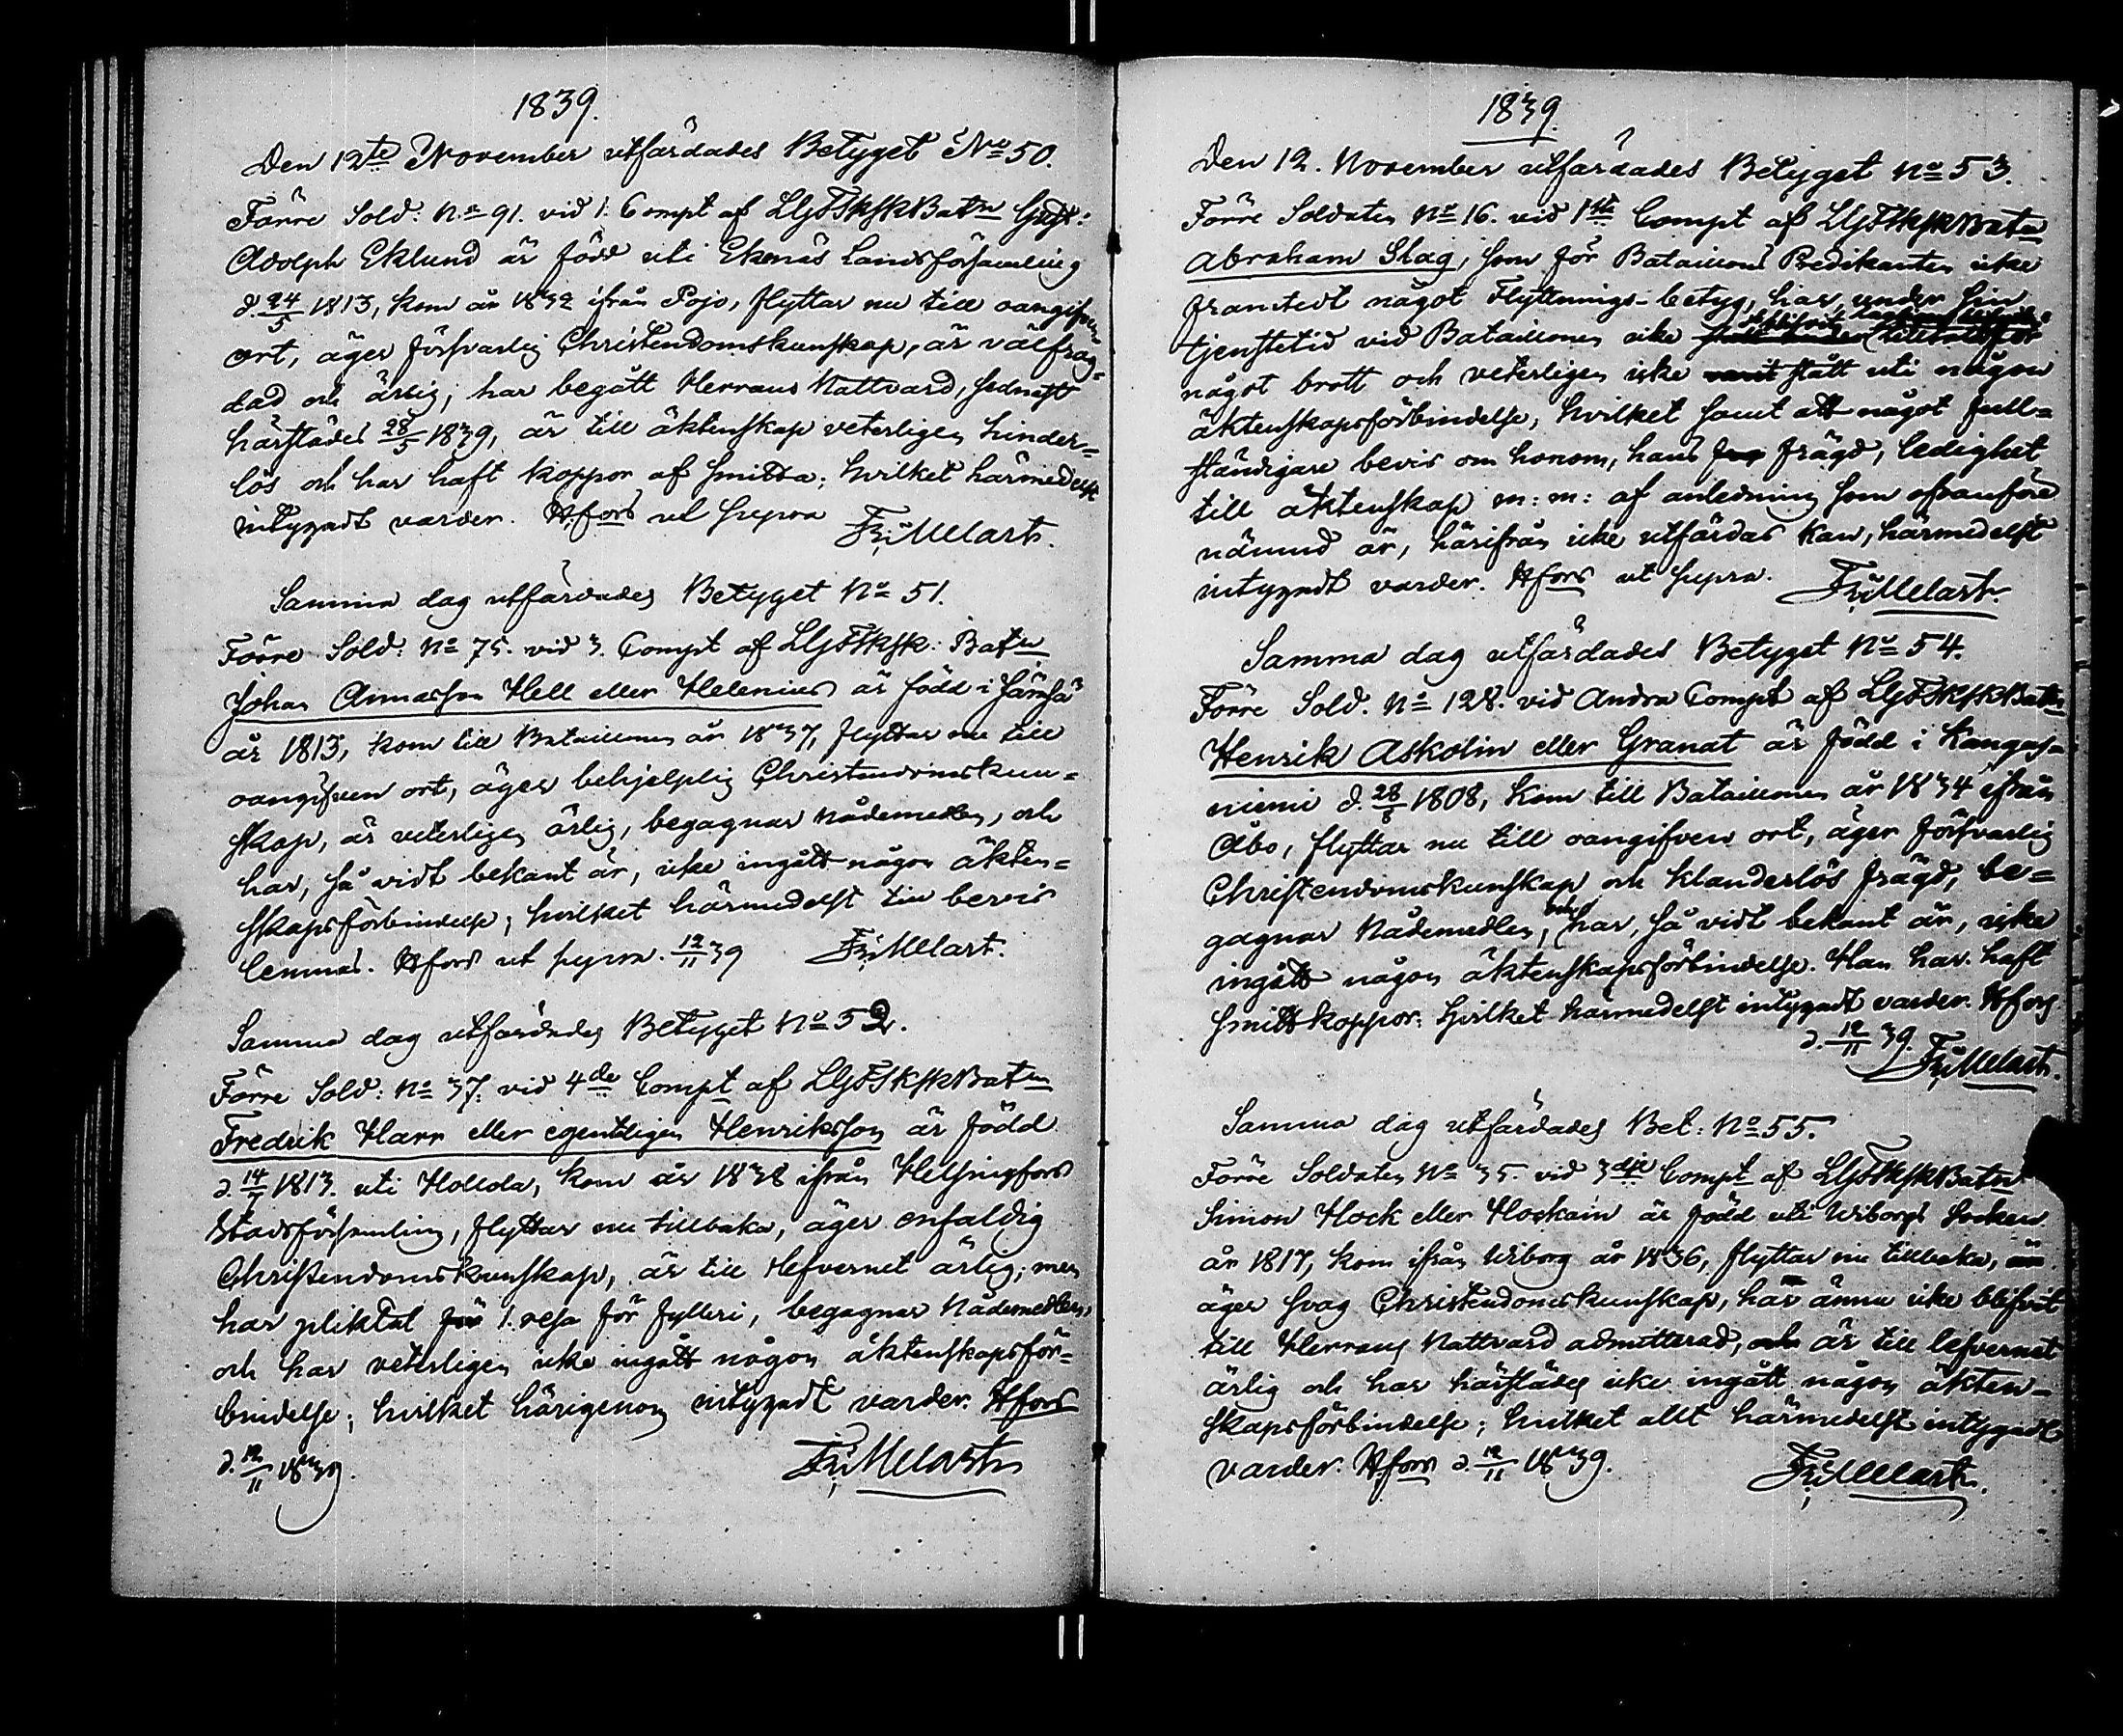 1839.
Den 12te November utfärdades Betyget No 50.
Förre Sold: No 91. vid 1. Compt af LLGFSkskBatn Gust:
Adolph Eklund är född uti Ekenäs Landsförsamling
d. 24/5 1813, kom år 1832 ifrån Pojo, flyttar nu till oangifven
ort, äger försvarlig Christendomskunskap, är välfräg-
dad och ärlig, har begått Herrans Nattvard, sednast
härstädes 28/5 1839, är till äktenskap veterligen hinder-
lös och har haft koppor af smitta; hvilket härmedelst
intygadt varder. Hfors ut supra
Fr: Melart.
Samma dag utfärdades Betyget No 51.
Förre Sold: No 75. vid 3. Compt af LLGFSksk: Batn
Johan Annasson Hell eller Helenius är född i Jämsä
år 1813, kom till Bataillonen år 1837, flyttar nu till
oangifven ort, äger behjelplig Christendomskun-
skap, är veterligen ärlig, begagnar nådemedlen, och
har, så vidt bekant är, icke ingått någon äkten-
skapsförbindelse; hvilket härmedelst till bevis
lemnas. Hfors ut supra. 12/11 39
Fr: Melart.
Samma dag utfärdades Betyget No 52.
Förre Sold: No 37. vid 4de Compt af LLGFSkskBatn
Fredrik Harr eller egentligen Henriksson är född
d. 14/ 1813. uti Hollola, kom år 1838 ifrån Helsingfors
Stadsförsamling, flyttar nu tillbaka, äger enfaldig
Christendomskunskap, är till lefvernet ärlig; men
har pliktat för 1. resa för fylleri, begagnar Nådemedlen,
och har veterligen icke ingått någon äktenskapsför-
bindelse; hvilket härigenom intygadt varder. Hfors
d. 12/11 1839.
Fr: Melart
1839.
Den 12. November utfärdades Betyget No 53.
Förre Soldaten No 16. vid 1sta Compt af LLGFSkskBatn
Abraham Slag, som för Bataillons Predikanten icke
framtedt något Flyttnings-betyg, har, under sin
tjenstetid vid Bataillonen icke för
något brott och veterligen icke varit stått uti någon
äktenskapsförbindelse; hvilket samt att något full-
ständigare bevis om honom, hans frägd, ledighet
till äktenskap m: m: af anledning som ofvanföre
nämnd är, härifrån icke utfärdas kan, härmedelst
intygadt varder. Hfors ut supra.
Fr: Melart.
Samma dag utfärdades Betyget No 54.
Förre Sold. No 128. vid Andra Compt af LLGFSkskBatn
Henrik Askolin eller Granat är född i Kangas-
niemi d. 28/ 1808, kom till Bataillonen år 1834 ifrån
Åbo, flyttar nu till oangifven ort, äger försvarlig
Christendomskunskap och klanderlös frägd, be-
gagnar Nådemedlen, och har, så vidt bekant är, icke
ingått någon äktenskapsförbindelse. Han har haft
smittkoppor: hvilket härmedelst intygadt varder. Hfors
d. 12/11 39.
Fr: Melart.
Samma dag utfärdades Bet: No 55.
Förre Soldaten No 35. vid 3dje Compt af LLGFSkskBatn
Simon Hock eller Hockain är född uti Wiborgs Socken
år 1817, kom ifrån Wiborg år 1836, flyttar nu tillbaka,
äger svag Christendomskunskap, har ännu icke blifvit
till Herrans Nattvard admitterad, och är till lefvernet
ärlig och har härstädes icke ingått någon äkten-
skapsförbindelse; hvilket allt härmedelst intygadt
varder. Hfors d. 12/11 1839.
Fr: Melart.